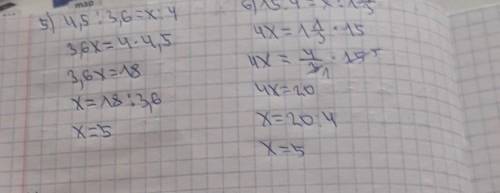 мар
5) 4,5 : 3,6 = x : 4
3,6x = 4 · 4,5
3,6x = 18
x = 18 : 3,6
x = 5
6) 15 : 4 = x : 1 1/3
4x = 1 1/3 · 15
4x = 4/3 1 · 15 5
4x = 20
x = 20 : 4
x = 5